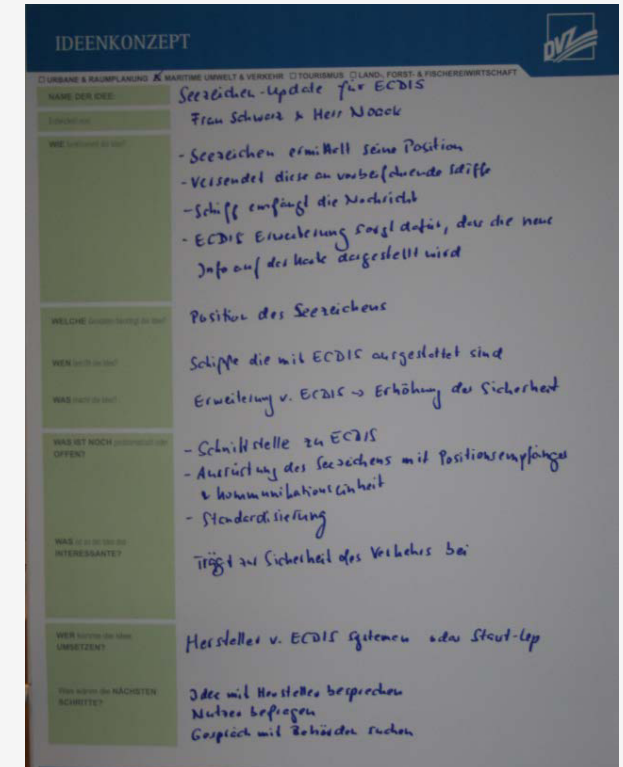 IDEENKONZEPT
DVZ
URBANE & RAUMPLANUNG MARITIME UMWELT & VERKEHR TOURISMUS LAND-, FORST- & FISCHEREIWIRTSCHAFT
NAME DER IDEE: Seezeichen-Update für ECDIS
Frau Schwarz & Herr Noack
WIE
- Seezeichen ermittelt seine Position
- Versendet diese an vorbeifahrende Schiffe
- Schiff empfängt die Nachricht
- ECDIS Erweiterung sorgt dafür, dass die neue
Info auf der Karte dargestellt wird
WELCHE Position des Seezeichens
WEN Schiffe die mit ECDIS ausgestattet sind
WAS Erweiterung v. ECDIS → Erhöhung der Sicherheit
WAS IST NOCH - Schnittstelle zu ECDIS
OFFEN? - Ausrüstung des Seezeichens mit Positionsempfänger
& Kommunikationseinheit
- Standardisierung
WAS
INTERESSANTE? Trägt zur Sicherheit des Verkehrs bei
WER Hersteller v. ECDIS Systemen oder Start-Up
UMSETZEN?
Was wären die NÄCHSTEN Idee mit Hersteller besprechen
SCHRITTE? Nutzer befragen
Gespräch mit Behörden suchen